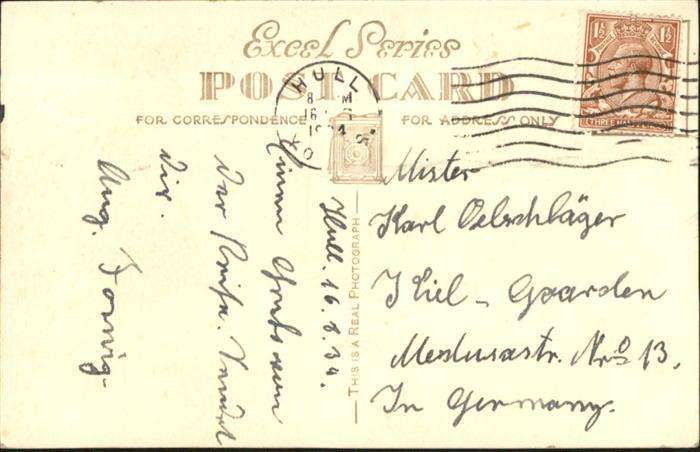 Excel Series
POST CARD
FOR CORRESPONDENCE
FOR ADDRESS ONLY
HULL
8 M
16
1934
1½ 1½
THIS IS A REAL PHOTOGRAPH
Hull. 16.8.34.
Einen Gruß von
der Reise. Sendet
Dir.
Aug.
Mister
Karl Oelschläger
Kiel - Gaarden
Medusastr. Nro 13.
In Germany.